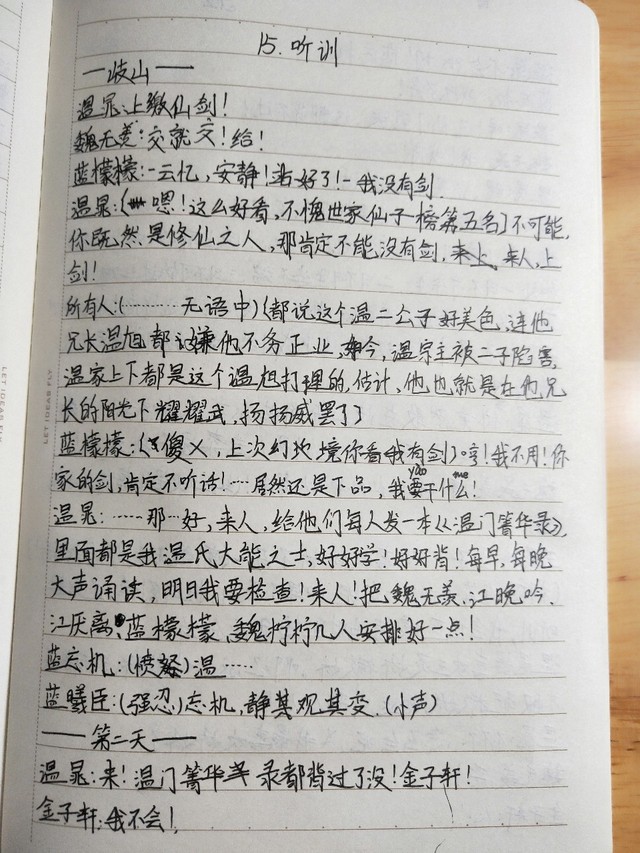 15.听训
——岐山——
温晁:上缴仙剑!
魏无羡:交就交!给!
蓝檬檬:-云忆,安静!站好了!-我没有剑.
温晁:(嗯!这么好看,不愧世家仙子榜第五名)不可能,
你既然是修仙之人,那肯定不能没有剑,来上,来人,上
剑!
所有人:(………无语中)(都说这个温二公子好美色,连他
兄长温旭都讠兼他不务正业,如今,温宗主被二子陷害,
温家上下都是这个温旭打理的,估计,他也就是在他兄
长的阳光下耀耀武,扬扬威罢了)
蓝檬檬:(傻X,上次幻地境你看我有剑)哼!我不用!你
家的剑,肯定不听话!…居然还是下品,我要yao干什么me!
温晁:……那…好,来人,给他们每人发一本《温门菁华录》,
里面都是我温氏大能之士,好好学!好好背!每早,每晚
大声诵读,明日我要检查!来人!把魏无羡、江晚吟、
江厌离、蓝檬檬、魏柠柠几人安排好一点!
蓝忘机:(愤怒)温……
蓝曦臣:(强忍)忘机,静其观其变.(小声)
——第二天——
温晁:来!温门菁华录都背过了没!金子轩!
金子轩:我不会!
LET IDEAS FLY